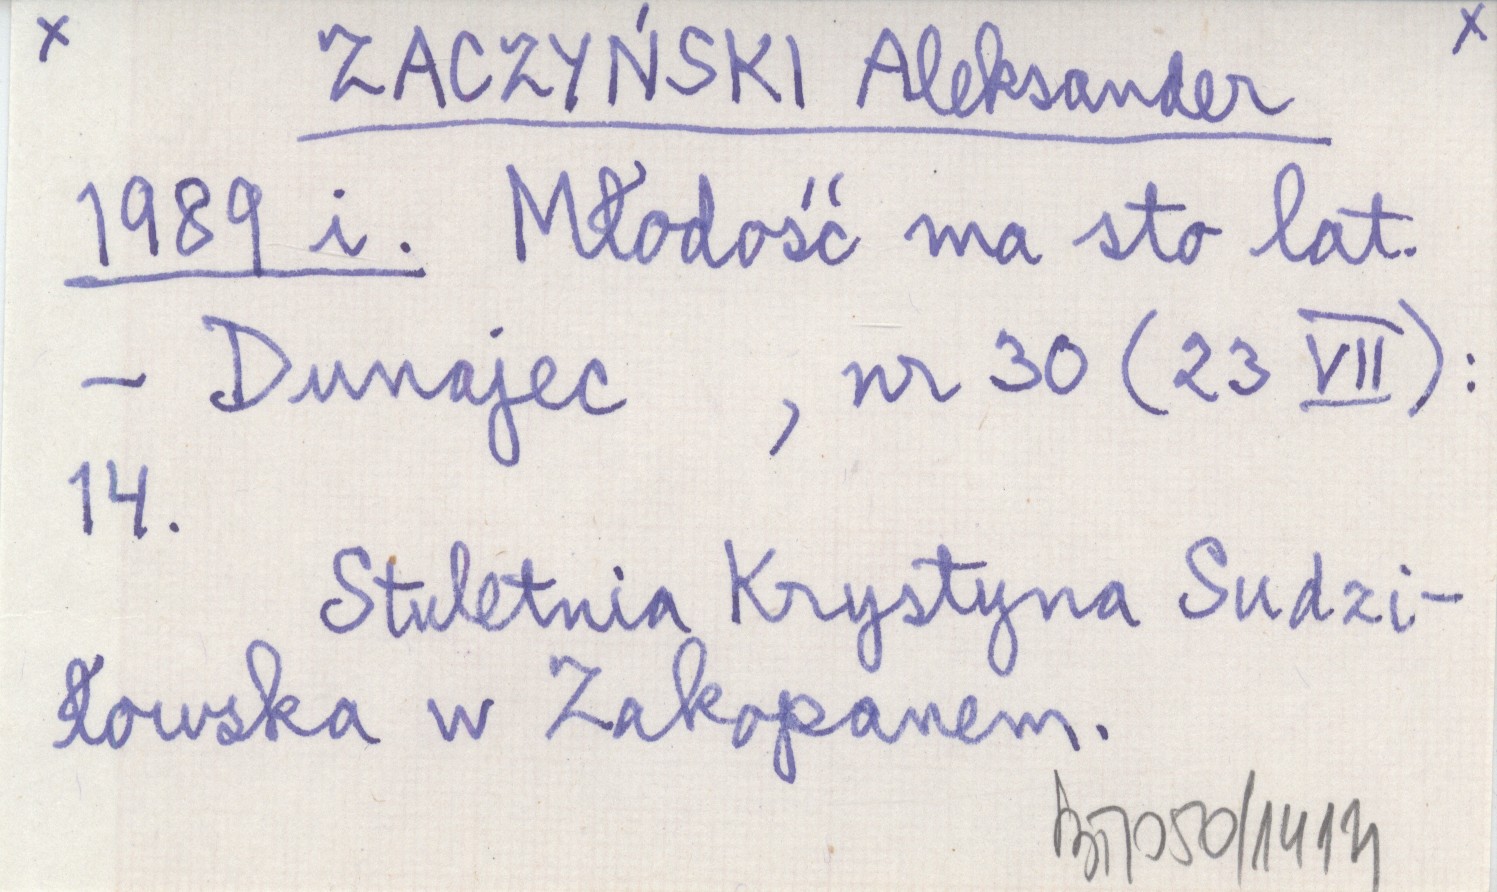 x ZACZYŃSKI Aleksander x
1989 i. Młodość ma sto lat.
- Dunajec , nr 30 (23 VII):
14.
Stuletnia Krystyna Sudzi-
łowska w Zakopanem.